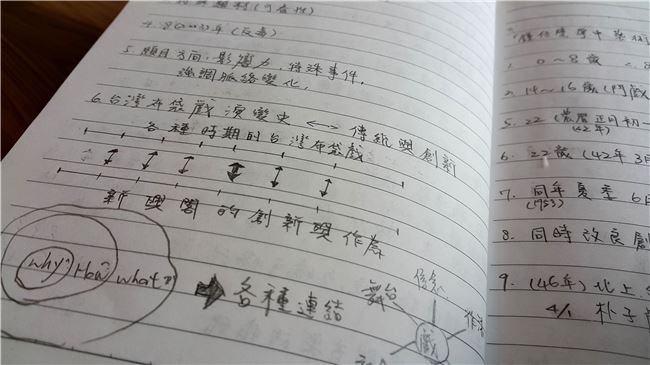 4. 80(2003)年(反毒)
5. 題目方向:影響力,特殊事件,
強調脈絡變化,
6. 台灣布袋戲演變史 ←→ 傳統與創新
各種時期的台灣布袋戲
新興閣的創新與作為
why? How? what?
➡ 各種連結
舞台
戲
0~8歲
2. 14~16歲(鬥戲
5. 22(農曆正月初一
(42年)
6. 22歲(42年3月
7. 同年夏季 6月
(1953)
8. 同時改良
9. (46年)北上
4/1 朴子